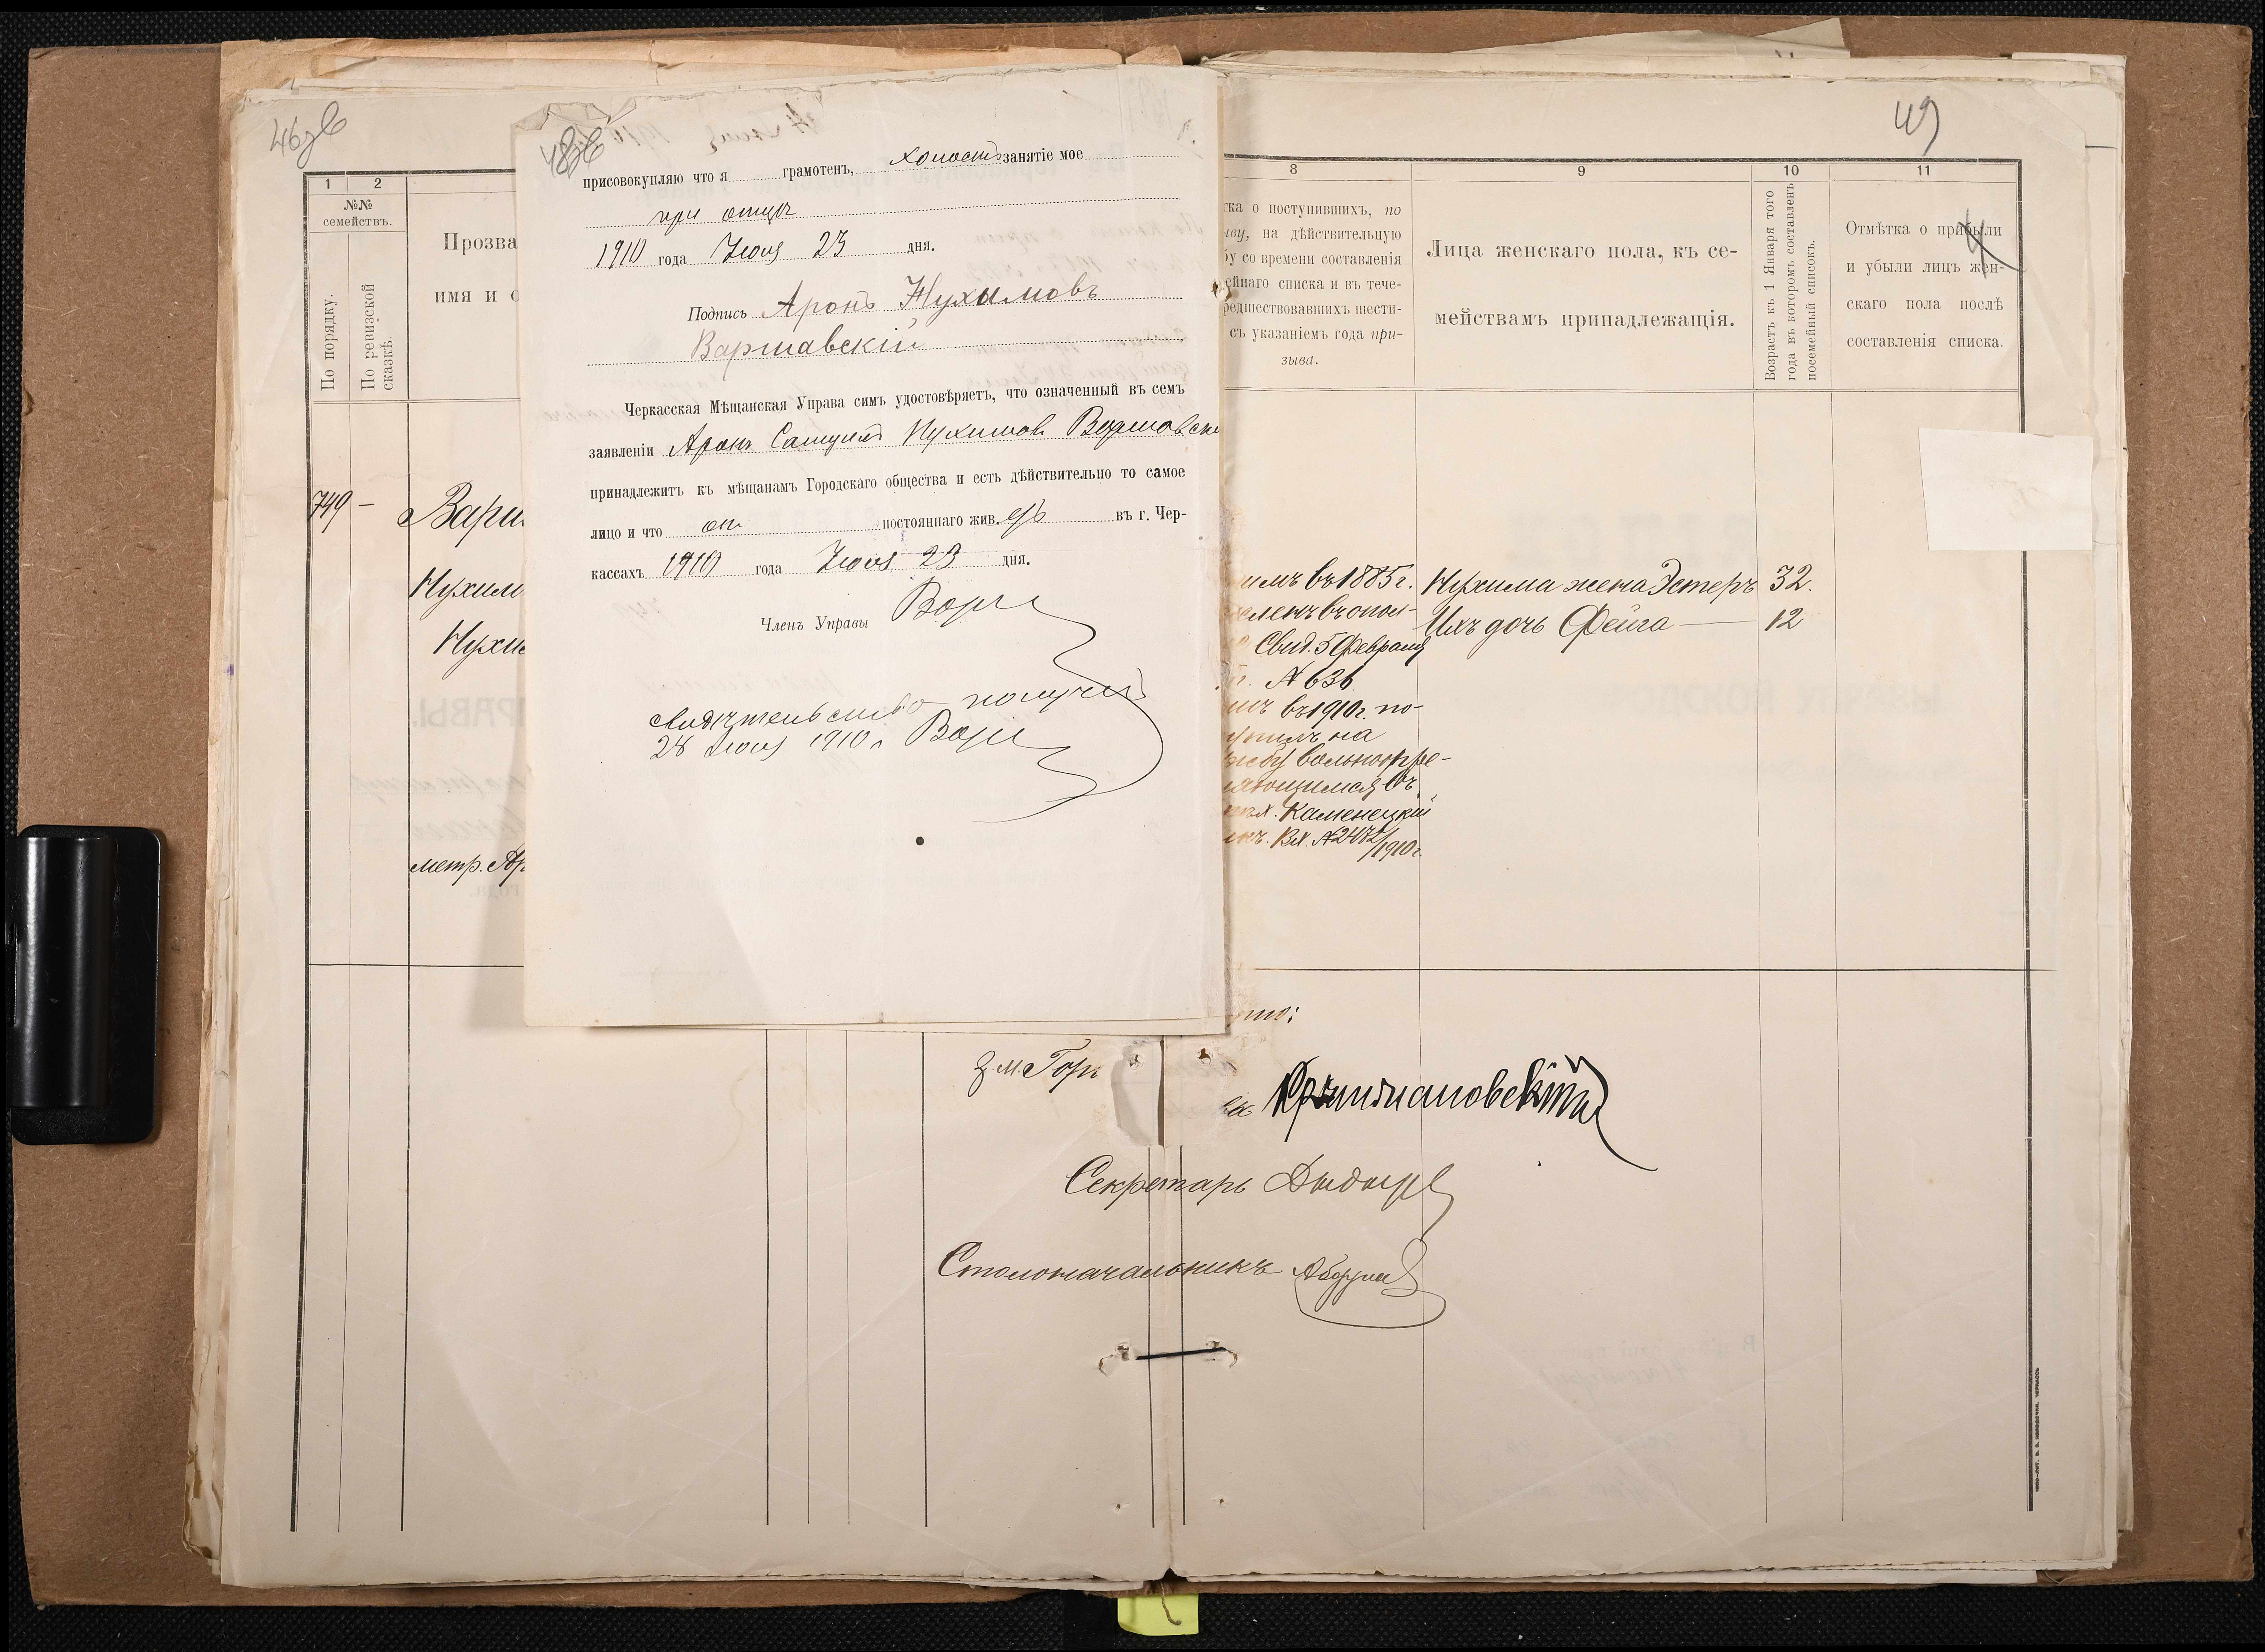 46об
48об
присовокупляю что я грамотенъ, холостъ занятіе мое
при отцѣ
1910 года Іюля 23 дня.
Подпись Аронъ Нухимовъ
Варшавскій
Черкасская Мѣщанская Управа симъ удостовѣряетъ, что означенный въ семъ
заявленіи Аронъ Самуилъ Нухимов Варшавскі
принадлежитъ къ мѣщанамъ Городскаго общества и есть дѣйствительно то самое
лицо и что он постояннаго жив. въ г. Чер-
кассахъ 1910 года Іюля 23 дня.
Членъ Управы
Свидѣтельство получил
28 Іюля 1910 г
1
2
№№
семействъ.
По порядку.
По ревизской
сказкѣ.
Прозва
имя и о
749 –
Варш
Нухим
Нухи
метр. Ар
49
8
9
10
11
тка о поступившихъ, по
ыву, на дѣйствительную
бу со времени составленія
ейнаго списка и въ тече-
редшествовавшихъ шести-
съ указаніемъ года при-
зыва.
Лица женскаго пола, къ се-
мействамъ принадлежащія.
Возрастъ къ 1 Января того
года въ которомъ составленъ
посемейный списокъ.
Отмѣтка о прибыли
и убыли лицъ жен-
скаго пола послѣ
составленія списка.
имъ въ 1885 г.
численъ въ опол-
Свид. 5 Февраля
г. № 636
въ 1910 г. по-
ступилъ на
службу вольноопре-
дѣляющимся въ
Каменецкій
Вх. № 2472/1910 г.
Нухима жена Эстеръ 32.
Ихъ дочь Фейга — 12
З. м. Гор
Секретарь
Столоначальникъ